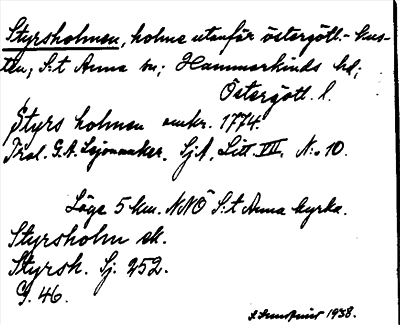 Styrsholmen, holme utanför östergötl.-kus-
ten, S:t Anna sn; Hammarkinds hd;
Östergötl. l.
Styrs holmen omkr. 1774.
G.A. Lejonancker. SjA, Litt. VII. N:o 10.
Läge 5 km. NNO S:t Anna kyrka.
Styrsholm ek.
Styrsh. Sj. 252.
G. 46.
1938.